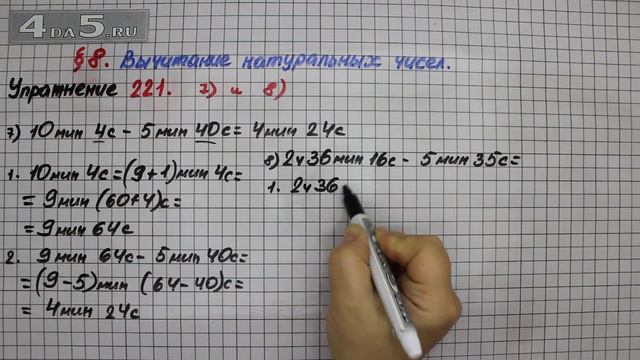 4DA5.RU
§8. Вычитание натуральных чисел.
Упражнение 221. 7) и 8)
7) 10мин 4с - 5мин 40с = 4мин 24с
1. 10мин 4с = (9+1)мин 4с =
= 9мин (60+4)с =
= 9мин 64с
2. 9мин 64с - 5мин 40с =
= (9-5)мин (64-40)с =
= 4мин 24с
8) 2ч 36мин 16с - 5мин 35с =
1. 2ч 36